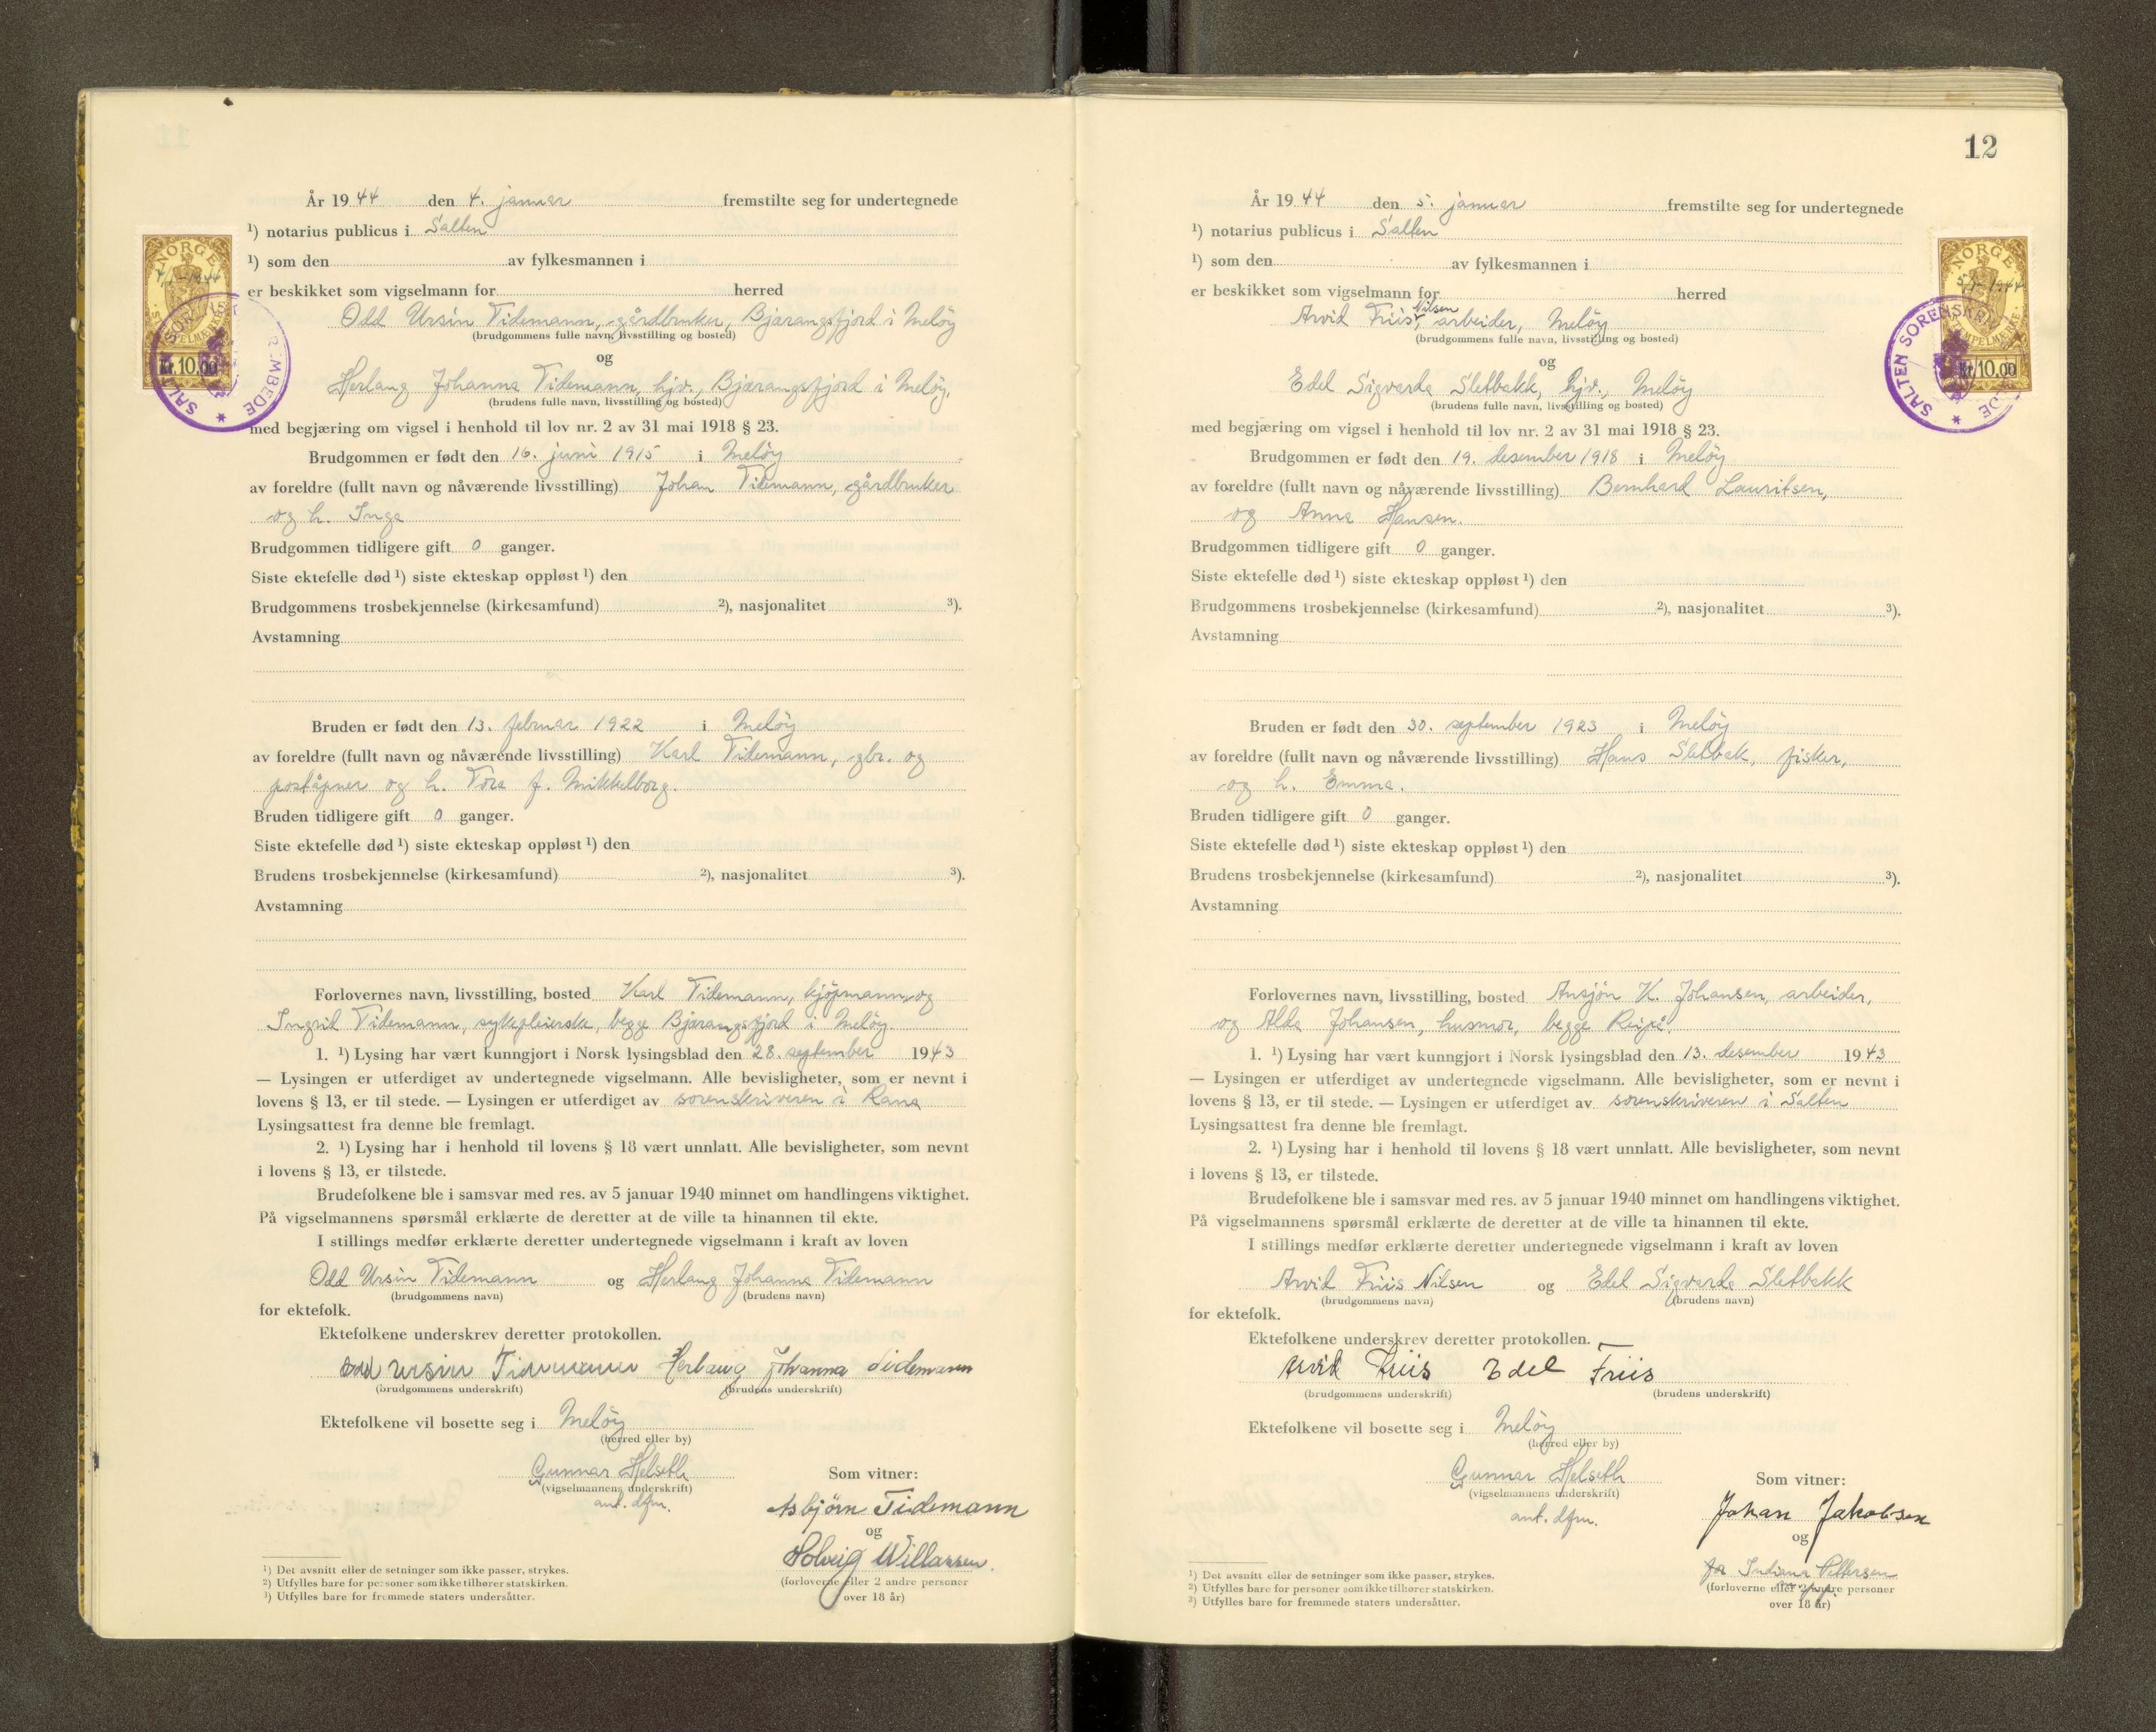 År 1944 den 4. januar fremstilte seg for undertegnede
¹) notarius publicus i Salten
¹) som den av fylkesmannen i
er beskikket som vigselmann for herred
Odd Ursin Tidemann, gårdbruker, Bjærangsfjord i Meløy
(brudgommens fulle navn, livsstilling og bosted)
og
Herlaug Johanna Tidemann, hjv., Bjærangsfjord i Meløy.
(brudens fulle navn, livsstilling og bosted)
med begjæring om vigsel i henhold til lov nr. 2 av 31 mai 1918 § 23.
Brudgommen er født den 16. juni 1915 i Meløy
av foreldre (fullt navn og nåværende livsstilling) Johan Tidemann, gårdbruker
og h. Inga
Brudgommen tidligere gift 0 ganger.
Siste ektefelle død ¹) siste ekteskap oppløst ¹) den
Brudgommens trosbekjennelse (kirkesamfund) ²), nasjonalitet ³).
Avstamning
Bruden er født den 13. februar 1922 i Meløy
av foreldre (fullt navn og nåværende livsstilling) Karl Tidemann, gbr. og
poståpner og h. Tora f. Mikkelborg.
Bruden tidligere gift 0 ganger.
Siste ektefelle død ¹) siste ekteskap oppløst ¹) den
Brudens trosbekjennelse (kirkesamfund) ²), nasjonalitet ³).
Avstamning
Forlovernes navn, livsstilling, bosted Karl Tidemann, kjøpmann og
Ingrid Tidemann, sykepleierske, begge Bjærangsfjord i Meløy
1. ¹) Lysing har vært kunngjort i Norsk lysingsblad den 28. september 1943
— Lysingen er utferdiget av undertegnede vigselmann. Alle bevisligheter, som er nevnt i
lovens § 13, er til stede. — Lysingen er utferdiget av sorenskriveren i Rana
Lysingsattest fra denne ble fremlagt.
2. ¹) Lysing har i henhold til lovens § 18 vært unnlatt. Alle bevisligheter, som nevnt
i lovens § 13, er tilstede.
Brudefolkene ble i samsvar med res. av 5 januar 1940 minnet om handlingens viktighet.
På vigselmannens spørsmål erklærte de deretter at de ville ta hinannen til ekte.
I stillings medfør erklærte deretter undertegnede vigselmann i kraft av loven
Odd Ursin Tidemann og Herlaug Johanna Tidemann
(brudgommens navn) (brudens navn)
for ektefolk.
Ektefolkene underskrev deretter protokollen.
Odd Ursin Tidemann Herlaug Johanna Tidemann
(brudgommens underskrift) (brudens underskrift)
Ektefolkene vil bosette seg i Meløy
(herred eller by)
Gunnar Helseth
(vigselmannens underskrift)
ant. dfm.
Som vitner:
Asbjørn Tidemann
og
Solveig Willassen.
(forloverne eller 2 andre personer
over 18 år)
¹) Det avsnitt eller de setninger som ikke passer, strykes.
²) Utfylles bare for personer som ikke tilhører statskirken.
³) Utfylles bare for fremmede staters undersåtter.
NORGE
4/1-1944
STEMPELMERKE
Kr. 10.00
12
År 1944 den 5. januar fremstilte seg for undertegnede
¹) notarius publicus i Salten
¹) som den av fylkesmannen i
er beskikket som vigselmann for herred
Arvid Friis Nilsen, arbeider, Meløy
(brudgommens fulle navn, livsstilling og bosted)
og
Edel Sigvarda Sletbakk, hjv., Meløy
(brudens fulle navn, livsstilling og bosted)
med begjæring om vigsel i henhold til lov nr. 2 av 31 mai 1918 § 23.
Brudgommen er født den 19. desember 1918 i Meløy
av foreldre (fullt navn og nåværende livsstilling) Bernhard Lauritsen,
og Anna Hansen.
Brudgommen tidligere gift 0 ganger.
Siste ektefelle død ¹) siste ekteskap oppløst ¹) den
Brudgommens trosbekjennelse (kirkesamfund) ²), nasjonalitet ³).
Avstamning
Bruden er født den 30. september 1923 i Meløy
av foreldre (fullt navn og nåværende livsstilling) Hans Sletbak, fisker,
og h. Emma.
Bruden tidligere gift 0 ganger.
Siste ektefelle død ¹) siste ekteskap oppløst ¹) den
Brudens trosbekjennelse (kirkesamfund) ²), nasjonalitet ³).
Avstamning
Forlovernes navn, livsstilling, bosted Ansjøn K. Johansen, arbeider,
og Alda Johansen, husmor, begge Reipå.
1. ¹) Lysing har vært kunngjort i Norsk lysingsblad den 13. desember 1943
— Lysingen er utferdiget av undertegnede vigselmann. Alle bevisligheter, som er nevnt i
lovens § 13, er til stede. — Lysingen er utferdiget av sorenskriveren i Salten
Lysingsattest fra denne ble fremlagt.
2. ¹) Lysing har i henhold til lovens § 18 vært unnlatt. Alle bevisligheter, som nevnt
i lovens § 13, er tilstede.
Brudefolkene ble i samsvar med res. av 5 januar 1940 minnet om handlingens viktighet.
På vigselmannens spørsmål erklærte de deretter at de ville ta hinannen til ekte.
I stillings medfør erklærte deretter undertegnede vigselmann i kraft av loven
Arvid Friis Nilsen og Edel Sigvarda Sletbakk
(brudgommens navn) (brudens navn)
for ektefolk.
Ektefolkene underskrev deretter protokollen.
Arvid Friis Edel Friis
(brudgommens underskrift) (brudens underskrift)
Ektefolkene vil bosette seg i Meløy
(herred eller by)
Gunnar Helseth
(vigselmannens underskrift)
ant. dfm.
Som vitner:
Johan Jakobsen
og
for Indiana Pettersen
(forloverne eller 2 andre personer
over 18 år)
¹) Det avsnitt eller de setninger som ikke passer, strykes.
²) Utfylles bare for personer som ikke tilhører statskirken.
³) Utfylles bare for fremmede staters undersåtter.
NORGE
5/1-1944
STEMPELMERKE
Kr. 10.00
SALTEN SORENSKRIV